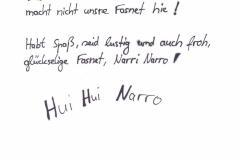 macht nicht unsre Fasnet hie!
Habt Spaß, seid lustig und auch froh,
glückselige Fasnet, Narri Narro!
Hui Hui Narro